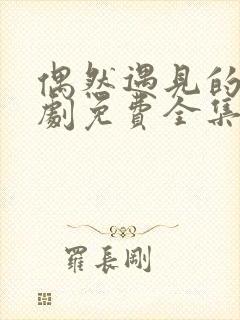 偶然遇见的
劇免費全集
羅長剛